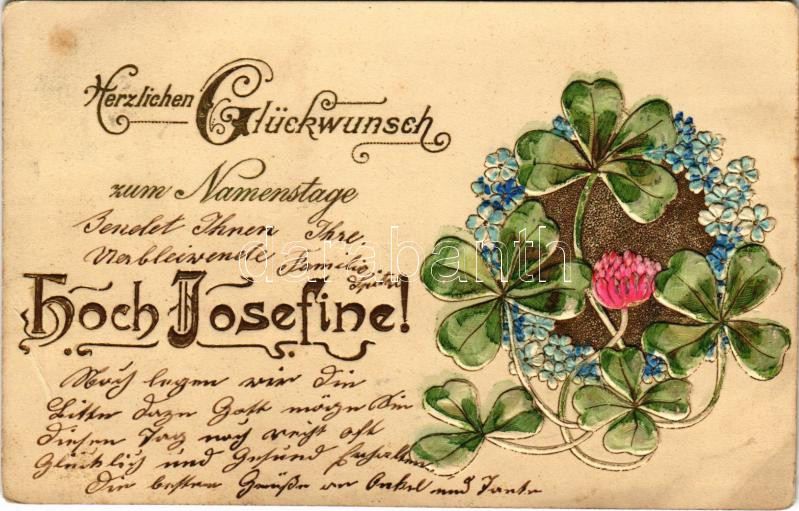 Herzlichen Glückwunsch
zum Namenstage
Sendet Ihnen Ihre
Verbleiwende Familie
Hoch Josefine!
Noch legen wir die
Bitte dazu Gott möge Sie
diesen Tag noch recht oft
Glücklich und Gesund
Die besten Grüße an Onkel und Tante
darabanth